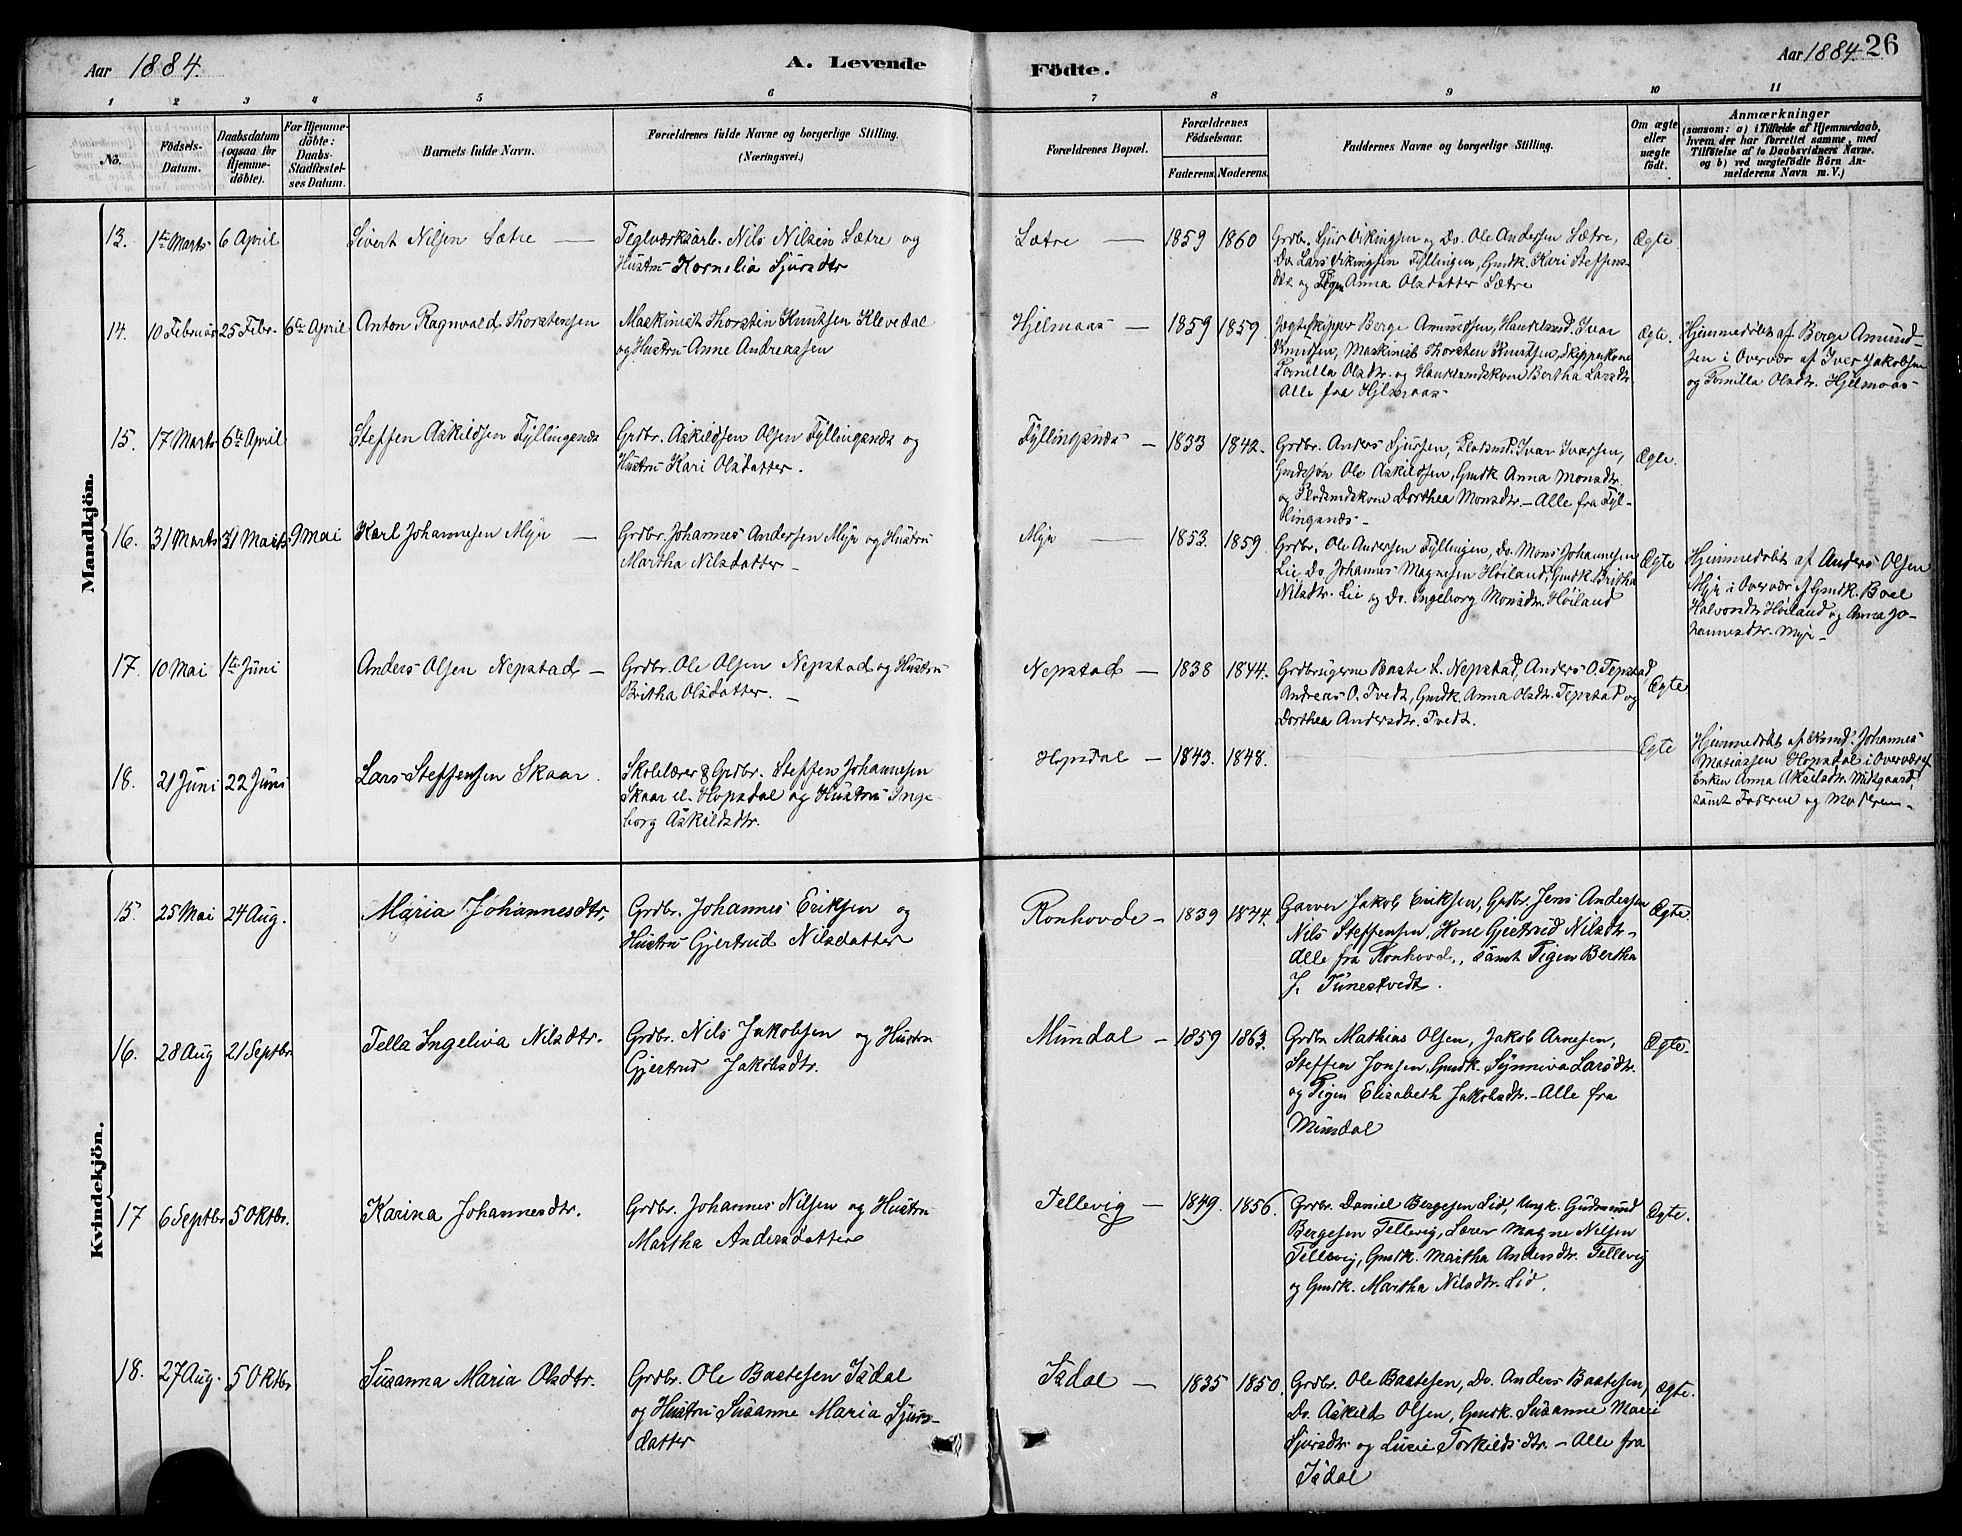 Aar 1884.
A. Levende
Födte.
Aar 1884. 26
1 2 3 4 5 6 7 8 9 10 11
No.
Födsels-
Datum.
Daabsdatum
(ogsaa for
Hjemme-
döbte).
For Hjemme-
döbte:
Daabs-
Stadfæstel-
ses Datum.
Barnets fulde Navn.
Forældrenes fulde Navne og borgerlige Stilling.
(Næringsvei.)
Forældrenes Bopæl.
Forældrenes
Födselsaar.
Faderens. Moderens.
Faddernes Navne og borgerlige Stilling.
Om ægte
eller
uægte
födt.
Anmærkninger
(saasom: a) i Tilfælde af Hjemmedaab,
hvem der har forrettet samme, med
Tilföielse af to Daabsvidners Navne.
og b) ved uægtefödte Börn An-
melderens Navn m. V.)
Mandkjön.
13. 1te Marts 6 April
Sivert Nilsen Sætre —
Teglværksarb. Nils Nilsen Sætre og
Hustru Kornelia Sjursdtr
Sætre — 1859 1860
Grdbr. Sjur Vikingsen og Do. Ole Andersen Sætre,
Do. Lars Vikingsen Fyllingen, Gmdk. Kari Steffens-
dtr og Pigen Anna Olsdatter Sætre
Ægte.
14. 10 Februar 25 Febr. 6te April
Anton Ragnvald Thorstensen
Maskinist Thorstein Knutsen Klevedal
og Hustru Anne Andreassen
Hjelmaas — 1859 1859.
Jægteskipper Berge Amundsen, Handelsmd. Ivar
Knutsen, Maskinist Thorsten Knutsen, Skipperkone
Pernilla Olsdtr. og Handelsmdskone Bertha Larsdtr.
Alle fra Hjelmaas
Ægte.
Hjemmedøbt af Berge Amund-
sen i Overvær af Iver Jakobsen
og Pernilla Olsdtr. Hjelmaas-
15. 17 Marts 6te April
Steffen Askildsen Fyllingsnæs
Grdbr. Askildsen Olsen Fyllingsnæs og
Hustru Kari Olsdatter.
Fyllingsnæs — 1833 1842.
Grdbr. Anders Sjursen, Pladsmd. Ivar Ivarsen,
Gmdssøn Ole Askildsen, Gmdk Anna Monsdtr.
og Pladsmdskone Dorthea Monsdtr. – Alle fra Fyl-
lingsnæs –
Ægte.
16. 31 Marts 31 Marts 9 Mai
Karl Johannesen Myr —
Grdbr. Johannes Andersen Myr og Hustru
Martha Nilsdatter –
Myr — 1853. 1859.
Grdbr. Ole Andersen Fyllingen, Do. Mons Johannesen
Lie, Do. Johannes Magnesen Høiland, Gmdk. Britha
Nilsdtr. Lie og Do. Ingeborg Monsdtr. Høiland
Ægte
Hjemmedøbt af Anders Olsen
Myr i Overvær af Gmdk. Boel
Halvorsdtr. Høiland og Anna Jo-
hannesdtr. Myr –
17. 10 Mai 1te Juni
Anders Olsen Nepstad –
Grdbr. Ole Olsen Nepstad og Hustru
Britha Olsdatter. –
Nepstad — 1838 1844.
Grdbrugerne Baste L. Nepstad, Anders O. Tepstad,
Andreas O. Tvedt, Gmdk. Anna Olsdtr. Tepstad og
Dorthea Andersdtr. Tvedt.
Ægte
18. 21 Juni 22 Juni
Lars Steffensen Skaar.
Skolelærer & Grdbr. Steffen Johannesen
Skaar el. Hopsdal og Hustru Inge-
borg Askildsdtr.
Hopsdal — 1843. 1848.
Ægte
Hjemmedøbt af Johannes
Matiassen Hopsdal i Overvær af
Enken Anna Akseldtr. Midtgaard,
samt Faderen og Moderen –
Kvindekjön.
15. 25 Mai 24 Aug.
Maria Johannesdtr.
Grdbr. Johannes Eriksen og
Hustru Gjertrud Nilsdatter
Ronhovde – 1839 1844.
Garver Jakob Eriksen, Grdbr. Jens Andersen
Nils Steffensen, Kone Gjertrud Nilsdtr –
Alle fra Ronhovd., samt Pigen Bertha
J. Tunestvedt.
Ægte
16. 28 Aug 21 Septbr
Tella Ingeliva Nilsdtr.
Grdbr. Nils Jakobsen og Hustru
Gjertrud Jakobsdtr.
Mundal — 1859 1863.
Grdbr Mathias Olsen, Jakob Arnesen,
Steffen Jonsen, Gmdk. Synneva Larsdtr.
og Pigen Elisabeth Jakobsdtr. – Alle fra
Mundal
Ægte.
17 6 Septbr 5 Oktbr.
Karina Johannesdtr.
Grdbr. Johannes Nilsen og Hustru
Martha Andersdatter
Tellevig — 1849. 1856.
Grdbr. Daniel Bergesen Lid, Ungk. Gudmund
Bergesen Tellevig, Lærer Magne Nilsen
Tellevig, Gmdk. Martha Andersdtr. Tellevig
og Gmdk. Martha Nilsdtr. Lid.
Ægte.
18. 27 Aug. 5 Oktbr
Susanna Maria Olsdtr.
Grdbr. Ole Bastesen Isdal
og Hustru Susanne Maria Sjurs-
datter
Isdal — 1835 1850.
Grdbr. Ole Bastesen, Do. Anders Bastesen,
Do. Askild Olsen, Gmdk. Susanne Marie
Sjursdtr og Lusie Torkildsdtr. – Alle fra
Isdal
Ægte.